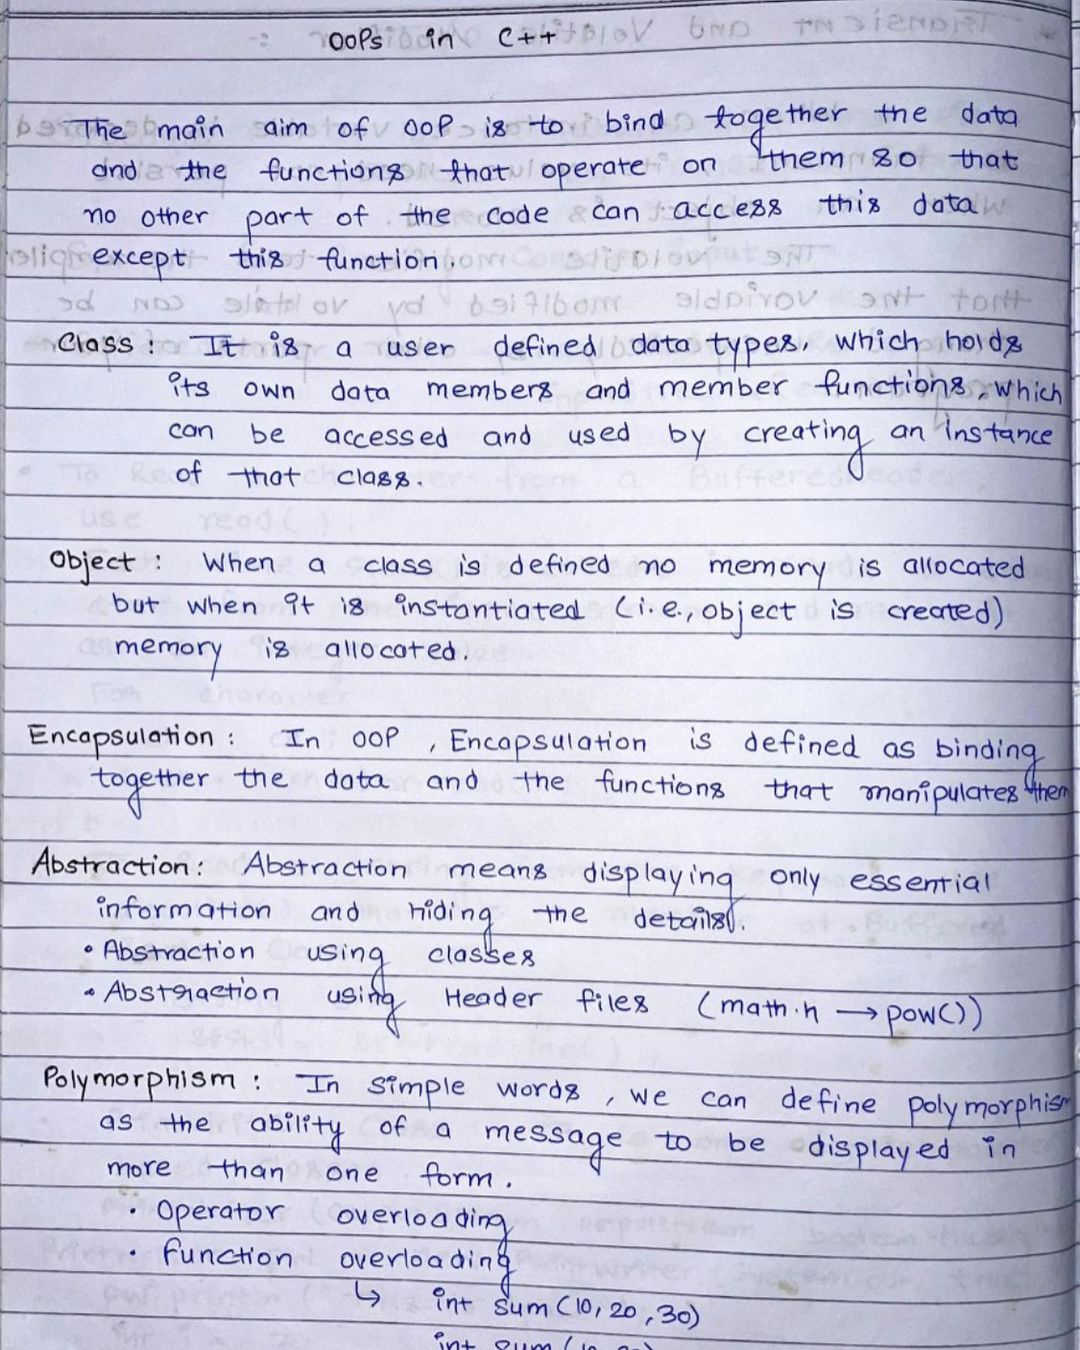 OOPs in C++
The main aim of OOP is to bind together the data
and the functions that operate on them so that
no other part of the code can access this data
except this function.
Class : It is a user defined data types, which holds
its own data members and member functions, which
can be accessed and used by creating an instance
of that class.
Object : When a class is defined no memory is allocated
but when it is instantiated (i.e., object is created)
memory is allocated.
Encapsulation : In OOP , Encapsulation is defined as binding
together the data and the functions that manipulates them
Abstraction : Abstraction means displaying only essential
information and hiding the details.
• Abstraction using classes
• Abstraction using Header files (math.h → pow())
Polymorphism : In simple words , we can define polymorphism
as the ability of a message to be displayed in
more than one form.
• Operator overloading
• function overloading
↳ int sum (10, 20, 30)
int sum (